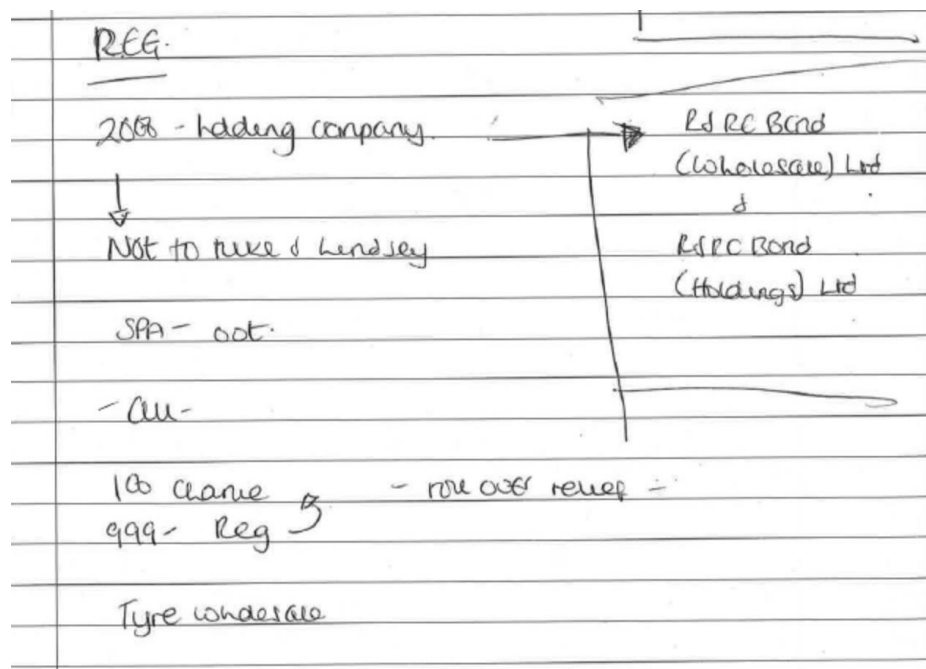 REG.
2008 - holding company.
Not to Luke & Lindsey
SPA - oct.
- all -
100 Charlie
999 - Reg
- roll over relief -
Tyre wholesale
R & RC Bond
(Wholesale) Ltd
&
R & RC Bond
(Holdings) Ltd